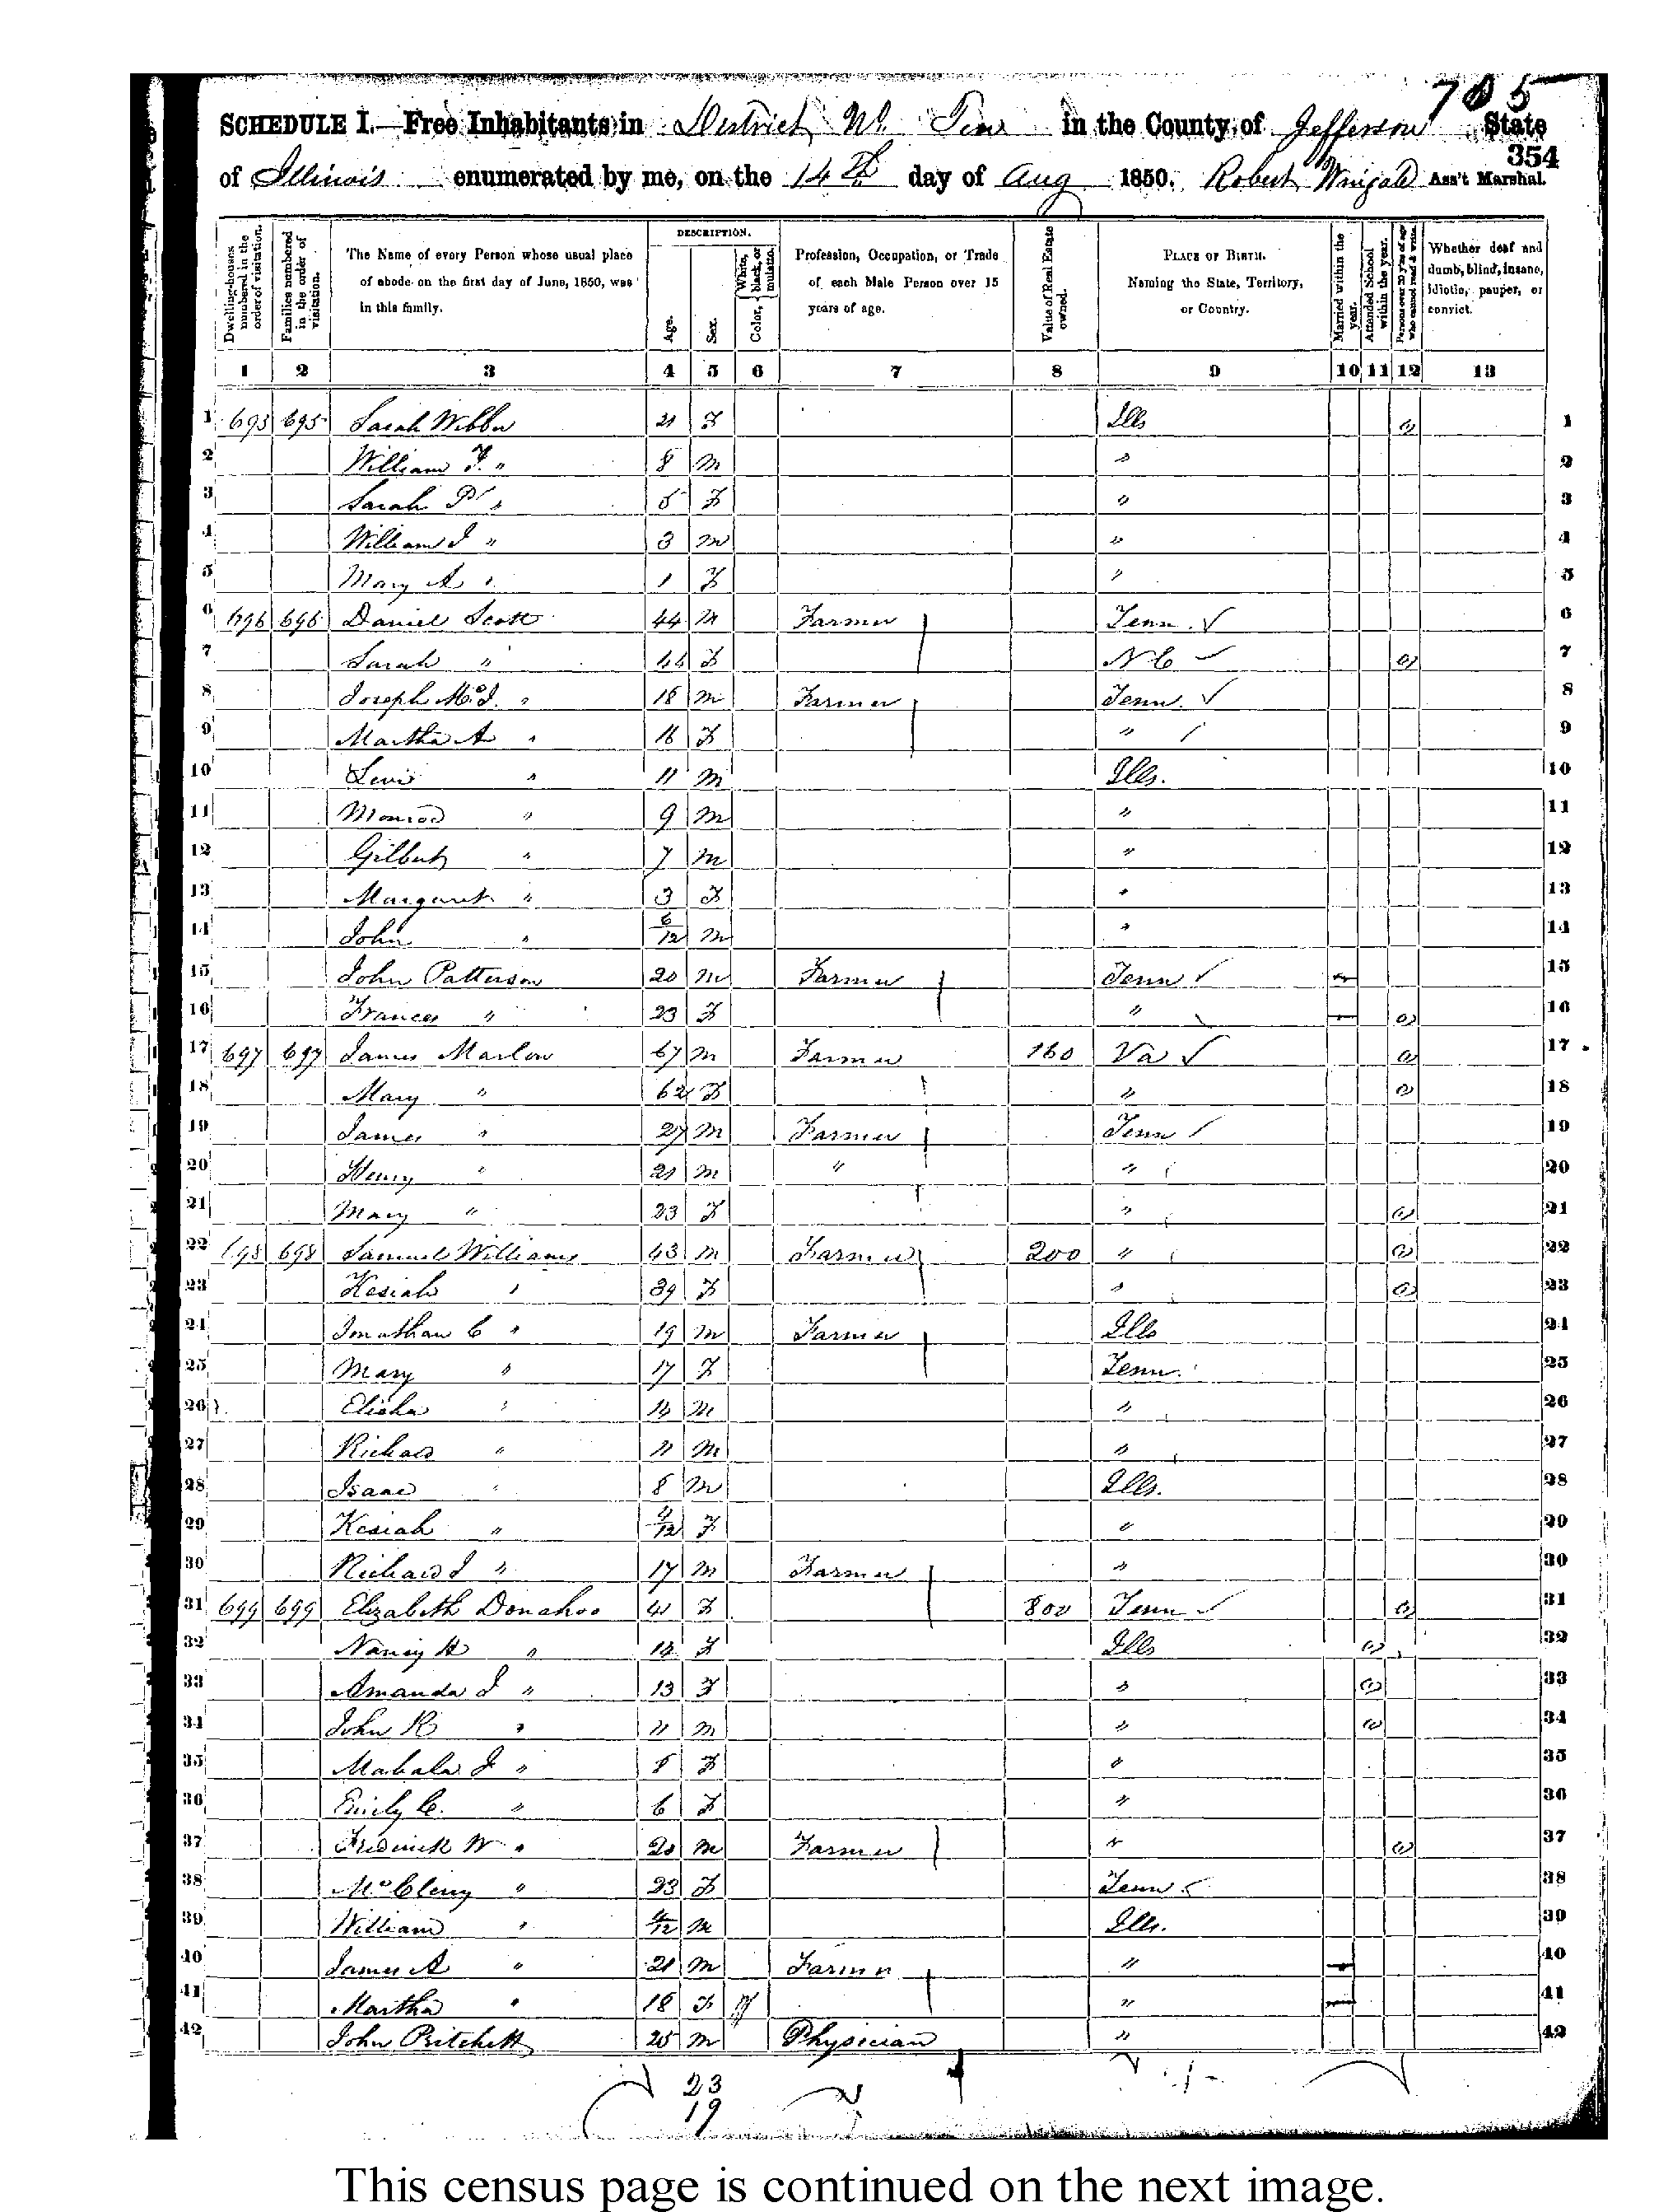 705
SCHEDULE I.—Free Inhabitants in District No. Two in the County of Jefferson State
354
of Illinois enumerated by me, on the 14th day of Aug 1850. Robert Wingate Ass't Marshal.
Dwelling-houses numbered in the order of visitation.
Families numbered in the order of visitation.
The Name of every Person whose usual place of abode on the first day of June, 1850, was in this family.
DESCRIPTION.
Age.
Sex.
Color, White, black, or mulatto.
Profession, Occupation, or Trade of each Male Person over 15 years of age.
Value of Real Estate owned.
PLACE OF BIRTH. Naming the State, Territory, or Country.
Married within the year.
Attended School within the year.
Persons over 20 y'rs of age who cannot read & write.
Whether deaf and dumb, blind, insane, idiotic, pauper, or convict.
1 2 3 4 5 6 7 8 9 10 11 12 13
1 695 695 Sarah Webber 21 F Ills 1
2 William F. " 8 M " 2
3 Sarah P " 5 F " 3
4 William J " 3 M " 4
5 Mary A " 1 F " 5
6 696 696 Daniel Scott 44 M Farmer Tenn. ✓ 6
7 Sarah " 44 F N C ✓ 7
8 Joseph McJ. " 18 M Farmer Tenn. ✓ 8
9 Martha A " 16 F " 9
10 Levi " 11 M Ills. 10
11 Monroe " 9 M " 11
12 Gilbert " 7 M " 12
13 Margaret " 3 F " 13
14 John " 6/12 M " 14
15 John Patterson 20 M Farmer Tenn ✓ 15
16 Frances " 23 F " 16
17 697 697 James Marlow 67 M Farmer 160 Va ✓ 17
18 Mary " 62 F " 18
19 James " 27 M Farmer Tenn ✓ 19
20 Henry " 21 M " " 20
21 Mary " 23 F " 21
22 698 698 Samuel Williams 43 M Farmer 200 " 22
23 Kesiah " 39 F " 23
24 Jonathan C " 19 M Farmer Ills 24
25 Mary " 17 F Tenn. 25
26 Elisha " 14 M " 26
27 Richard " 11 M " 27
28 Isaac " 8 M Ills. 28
29 Kesiah " /12 F " 29
30 Richard J " 17 M Farmer " 30
31 699 699 Elizabeth Donahoo 41 F 800 Tenn ✓ 31
32 Nancy H " 14 F Ills 32
33 Amanda J " 13 F " 33
34 John R " 11 M " 34
35 Mahala J " 8 F " 35
36 Emily C. " 6 F " 36
37 Frederick W " 20 M Farmer " 37
38 McCleny " 23 F Tenn 38
39 William " 4/12 M Ills. 39
40 James A " 21 M Farmer " 40
41 Martha " 18 F " 41
42 John Pritchett 25 M Physician " 42
23
19
This census page is continued on the next image.